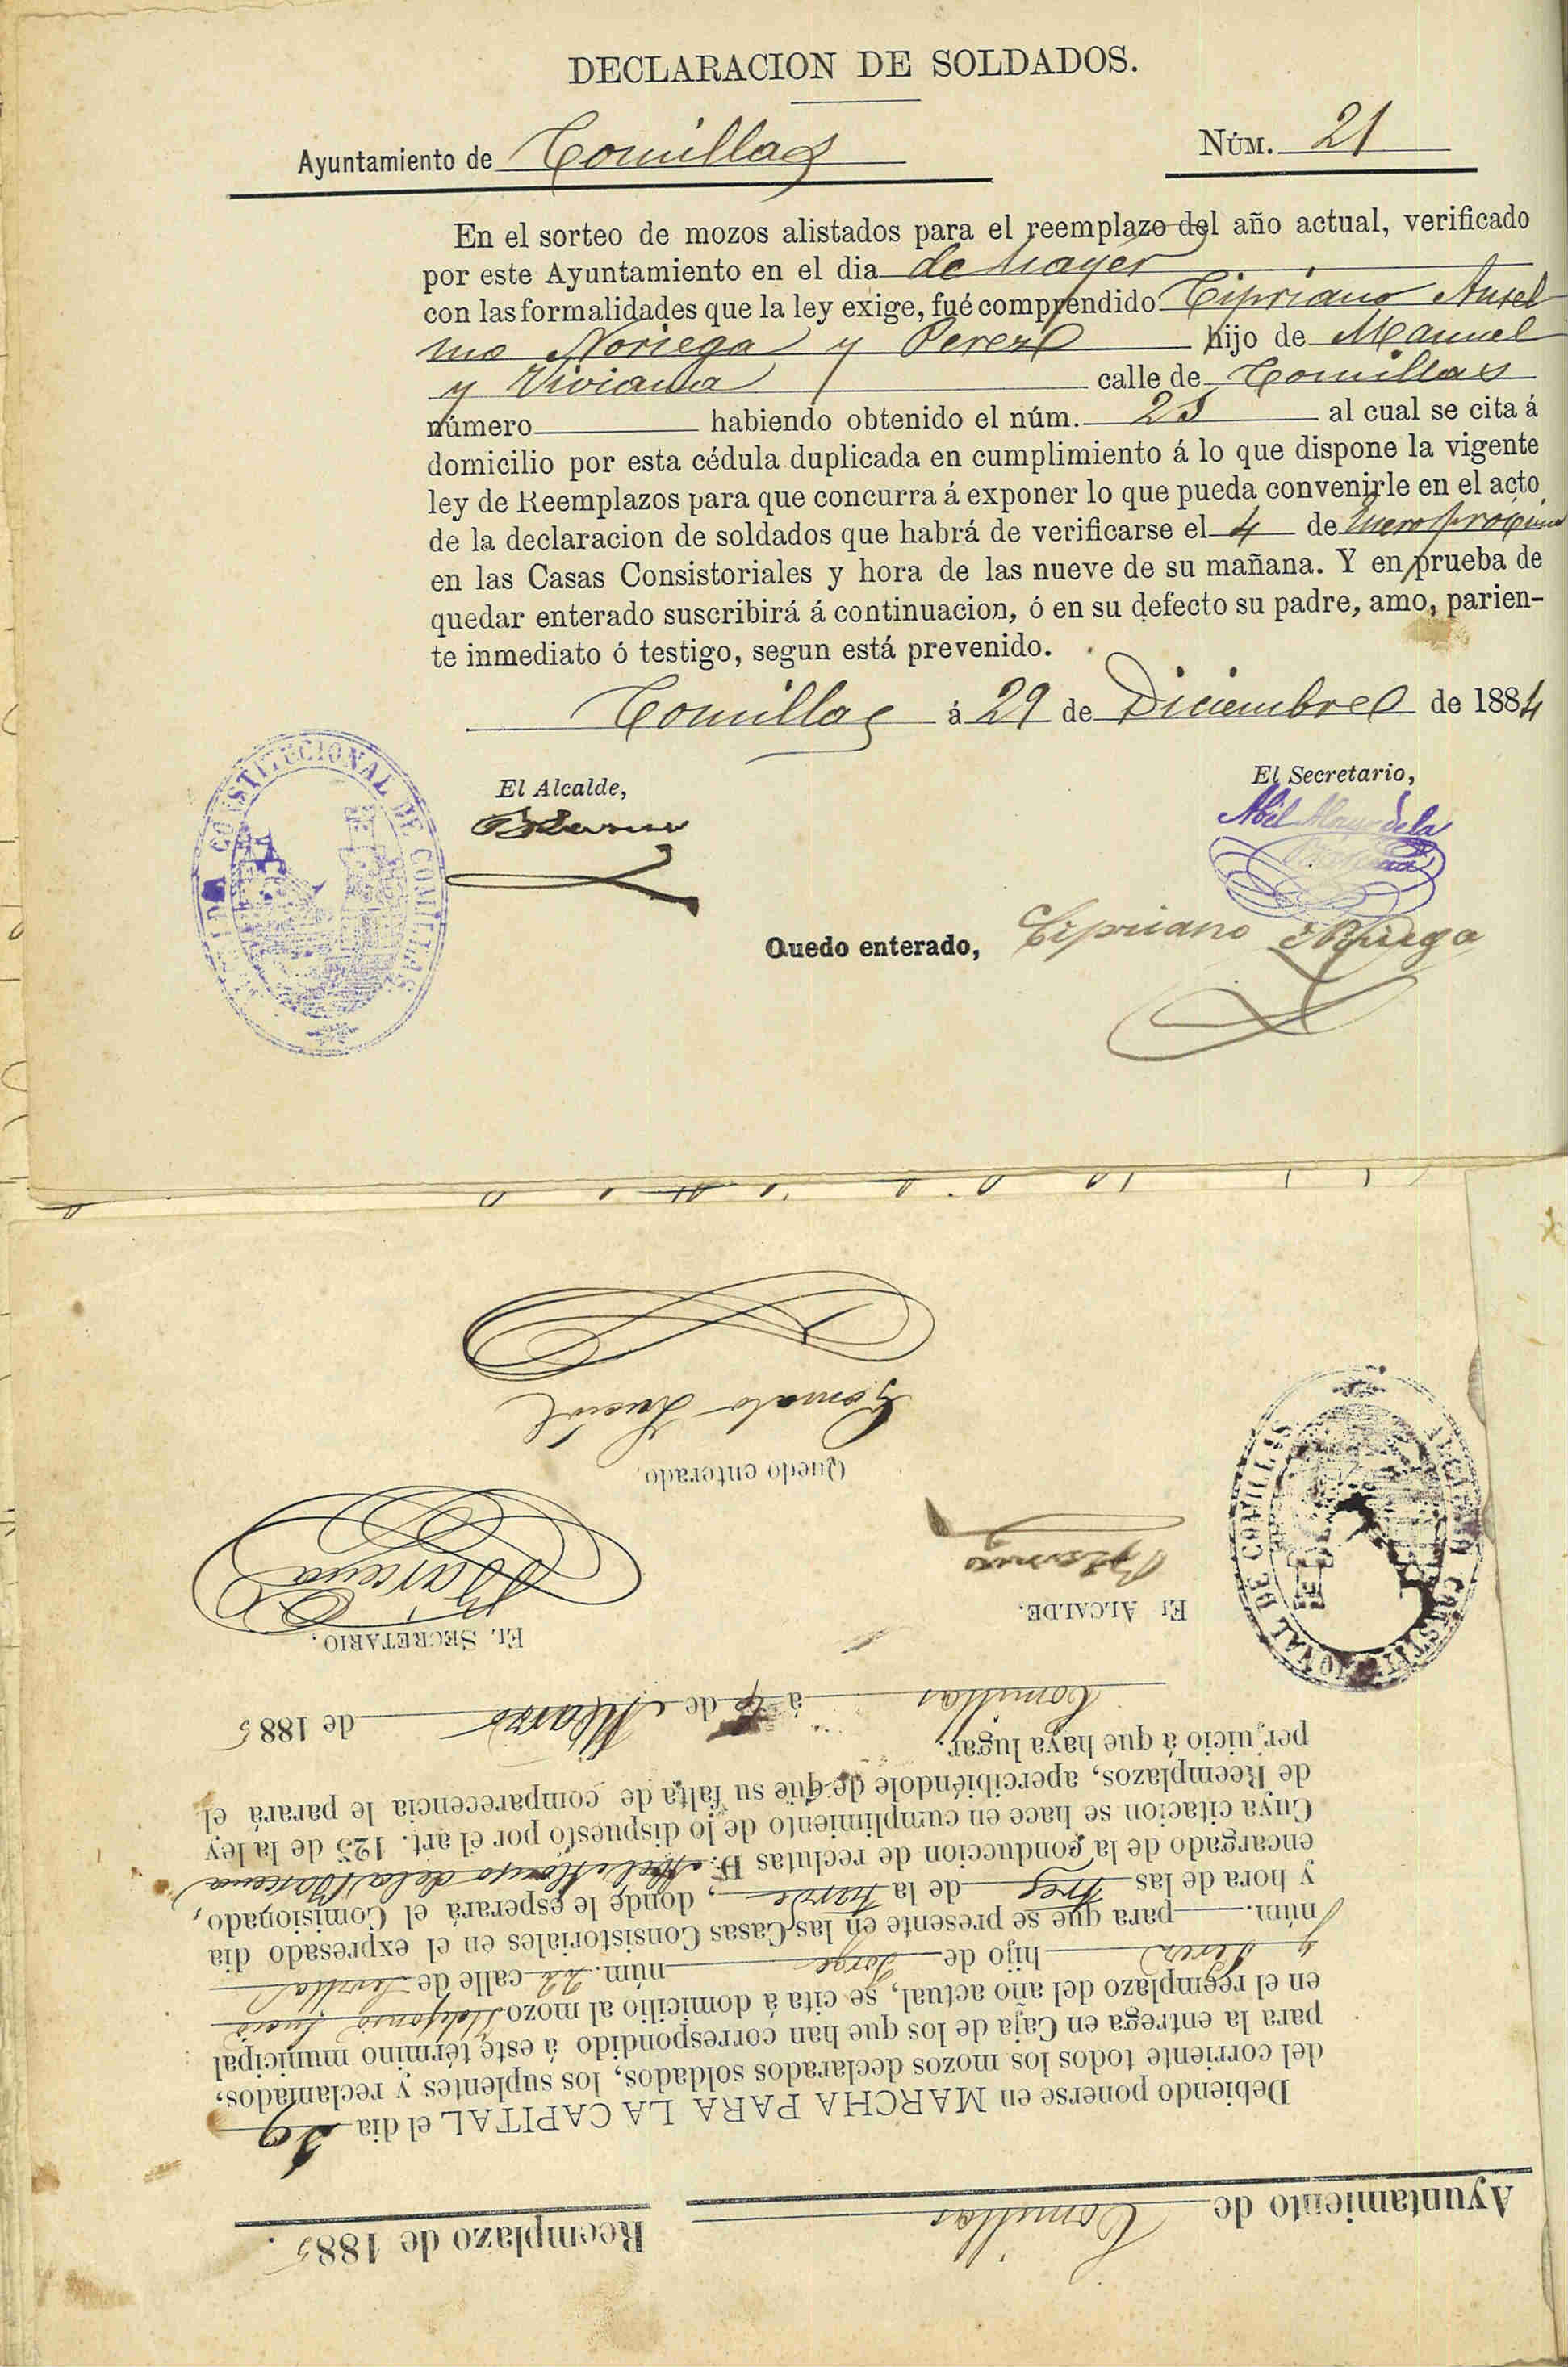 DECLARACION DE SOLDADOS.
Ayuntamiento de Comillas NÚM. 21
En el sorteo de mozos alistados para el reemplazo del año actual, verificado
por este Ayuntamiento en el dia de hayer
con las formalidades que la ley exige, fué comprendido Cipriano Ansel
mo Noriega y Perez hijo de Manuel
y Viviana calle de Comillas
número habiendo obtenido el núm. 25 al cual se cita á
domicilio por esta cédula duplicada en cumplimiento á lo que dispone la vigente
ley de Reemplazos para que concurra á exponer lo que pueda convenirle en el acto
de la declaracion de soldados que habrá de verificarse el 4 de Enero proximo
en las Casas Consistoriales y hora de las nueve de su mañana. Y en prueba de
quedar enterado suscribirá á continuacion, ó en su defecto su padre, amo, parien-
te inmediato ó testigo, segun está prevenido.
Comillas á 29 de Diciembre de 1884
El Alcalde, El Secretario,
Abel Alonso de la
CONSTITUCIONAL DE COMILLAS
Quedo enterado, Cipriano Noriega
Ayuntamiento de Comillas Reemplazo de 1885.
Debiendo ponerse en MARCHA PARA LA CAPITAL el dia
del corriente todos los mozos declarados soldados, los suplentes y reclamados,
para la entrega en Caja de los que han correspondido á este término municipal
en el reemplazo del año actual, se cita á domicilio al mozo Ildefonso Lucio
y Perez hijo de Jorge núm. 22 calle de Sevilla
núm. para que se presente en las Casas Consistoriales en el expresado dia
y hora de las tres de la tarde, donde le esperará el Comisionado,
encargado de la conduccion de reclutas D. Abel Alonso de la Barcena
Cuya citacion se hace en cumplimiento de lo dispuesto por el art. 125 de la ley
de Reemplazos, apercibiéndole de que su falta de comparecencia le parará el
perjuicio á que haya lugar.
Comillas á 6 de Marzo de 1885
EL ALCALDE. EL SECRETARIO.
Barcena
CONSTITUCIONAL DE COMILLAS
Quedo enterado.
Gonzalo Lucio